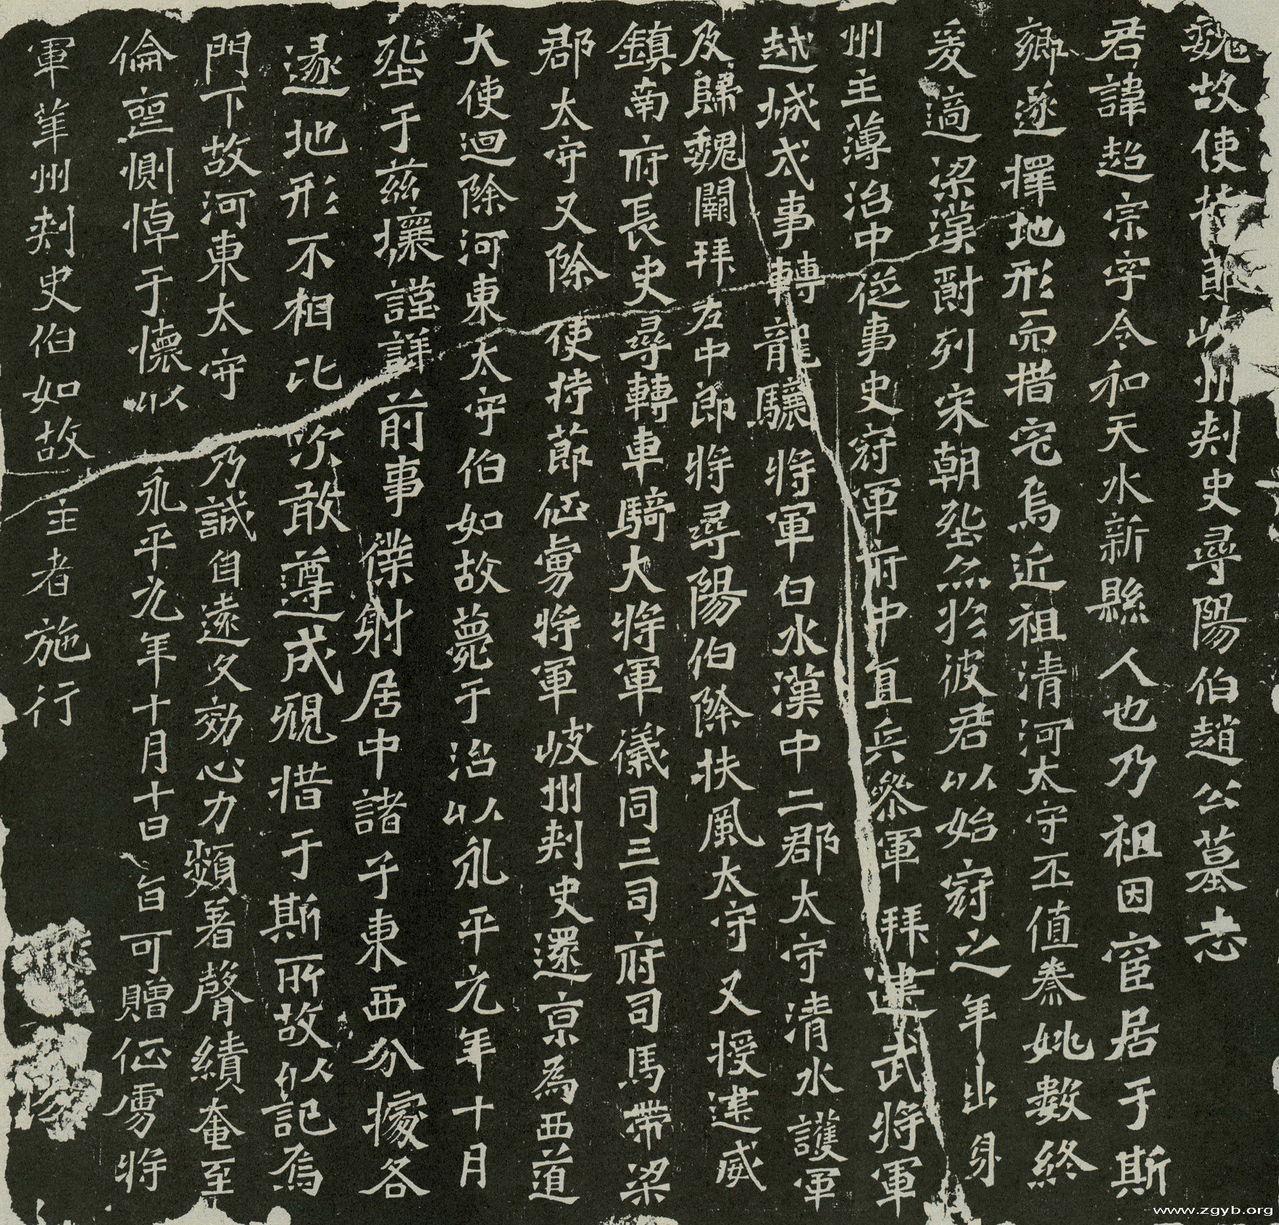 魏故使持節岐州刾史尋陽伯趙公墓志
君諱超宗字令和天水新縣人也乃祖因宦居于斯
鄉遂擇地形而措宅焉近祖清河太守丕值秦姚數終
爰適梁漢爵列宋朝㘸於彼君以始冠之年出身
州主薄治中從事史冠軍府中直兵叅軍拜建武將軍
越城戍事轉龍驤將軍白水漢中二郡太守清水護軍
及歸魏闕拜左中郎將尋陽伯除扶風太守又授建威
鎮南府長史尋轉車騎大將軍儀同三司府司馬帶梁
郡太守又除使持節征虜將軍岐州刾史還京為西道
大使迴除河東太守伯如故薨于治以永平元年十月
㘸于茲壤謹詳前事僕射居中諸子東西分據各
遂地形不相比次敢遵成䂓措于斯所故以記焉
門下故河東太守乃誠自遠文効心力頗著聲績奄至
倫喪惻悼于懷以永平元年十月十日旨可贈征虜將
軍華州刾史伯如故主者施行
www.zgyb.org